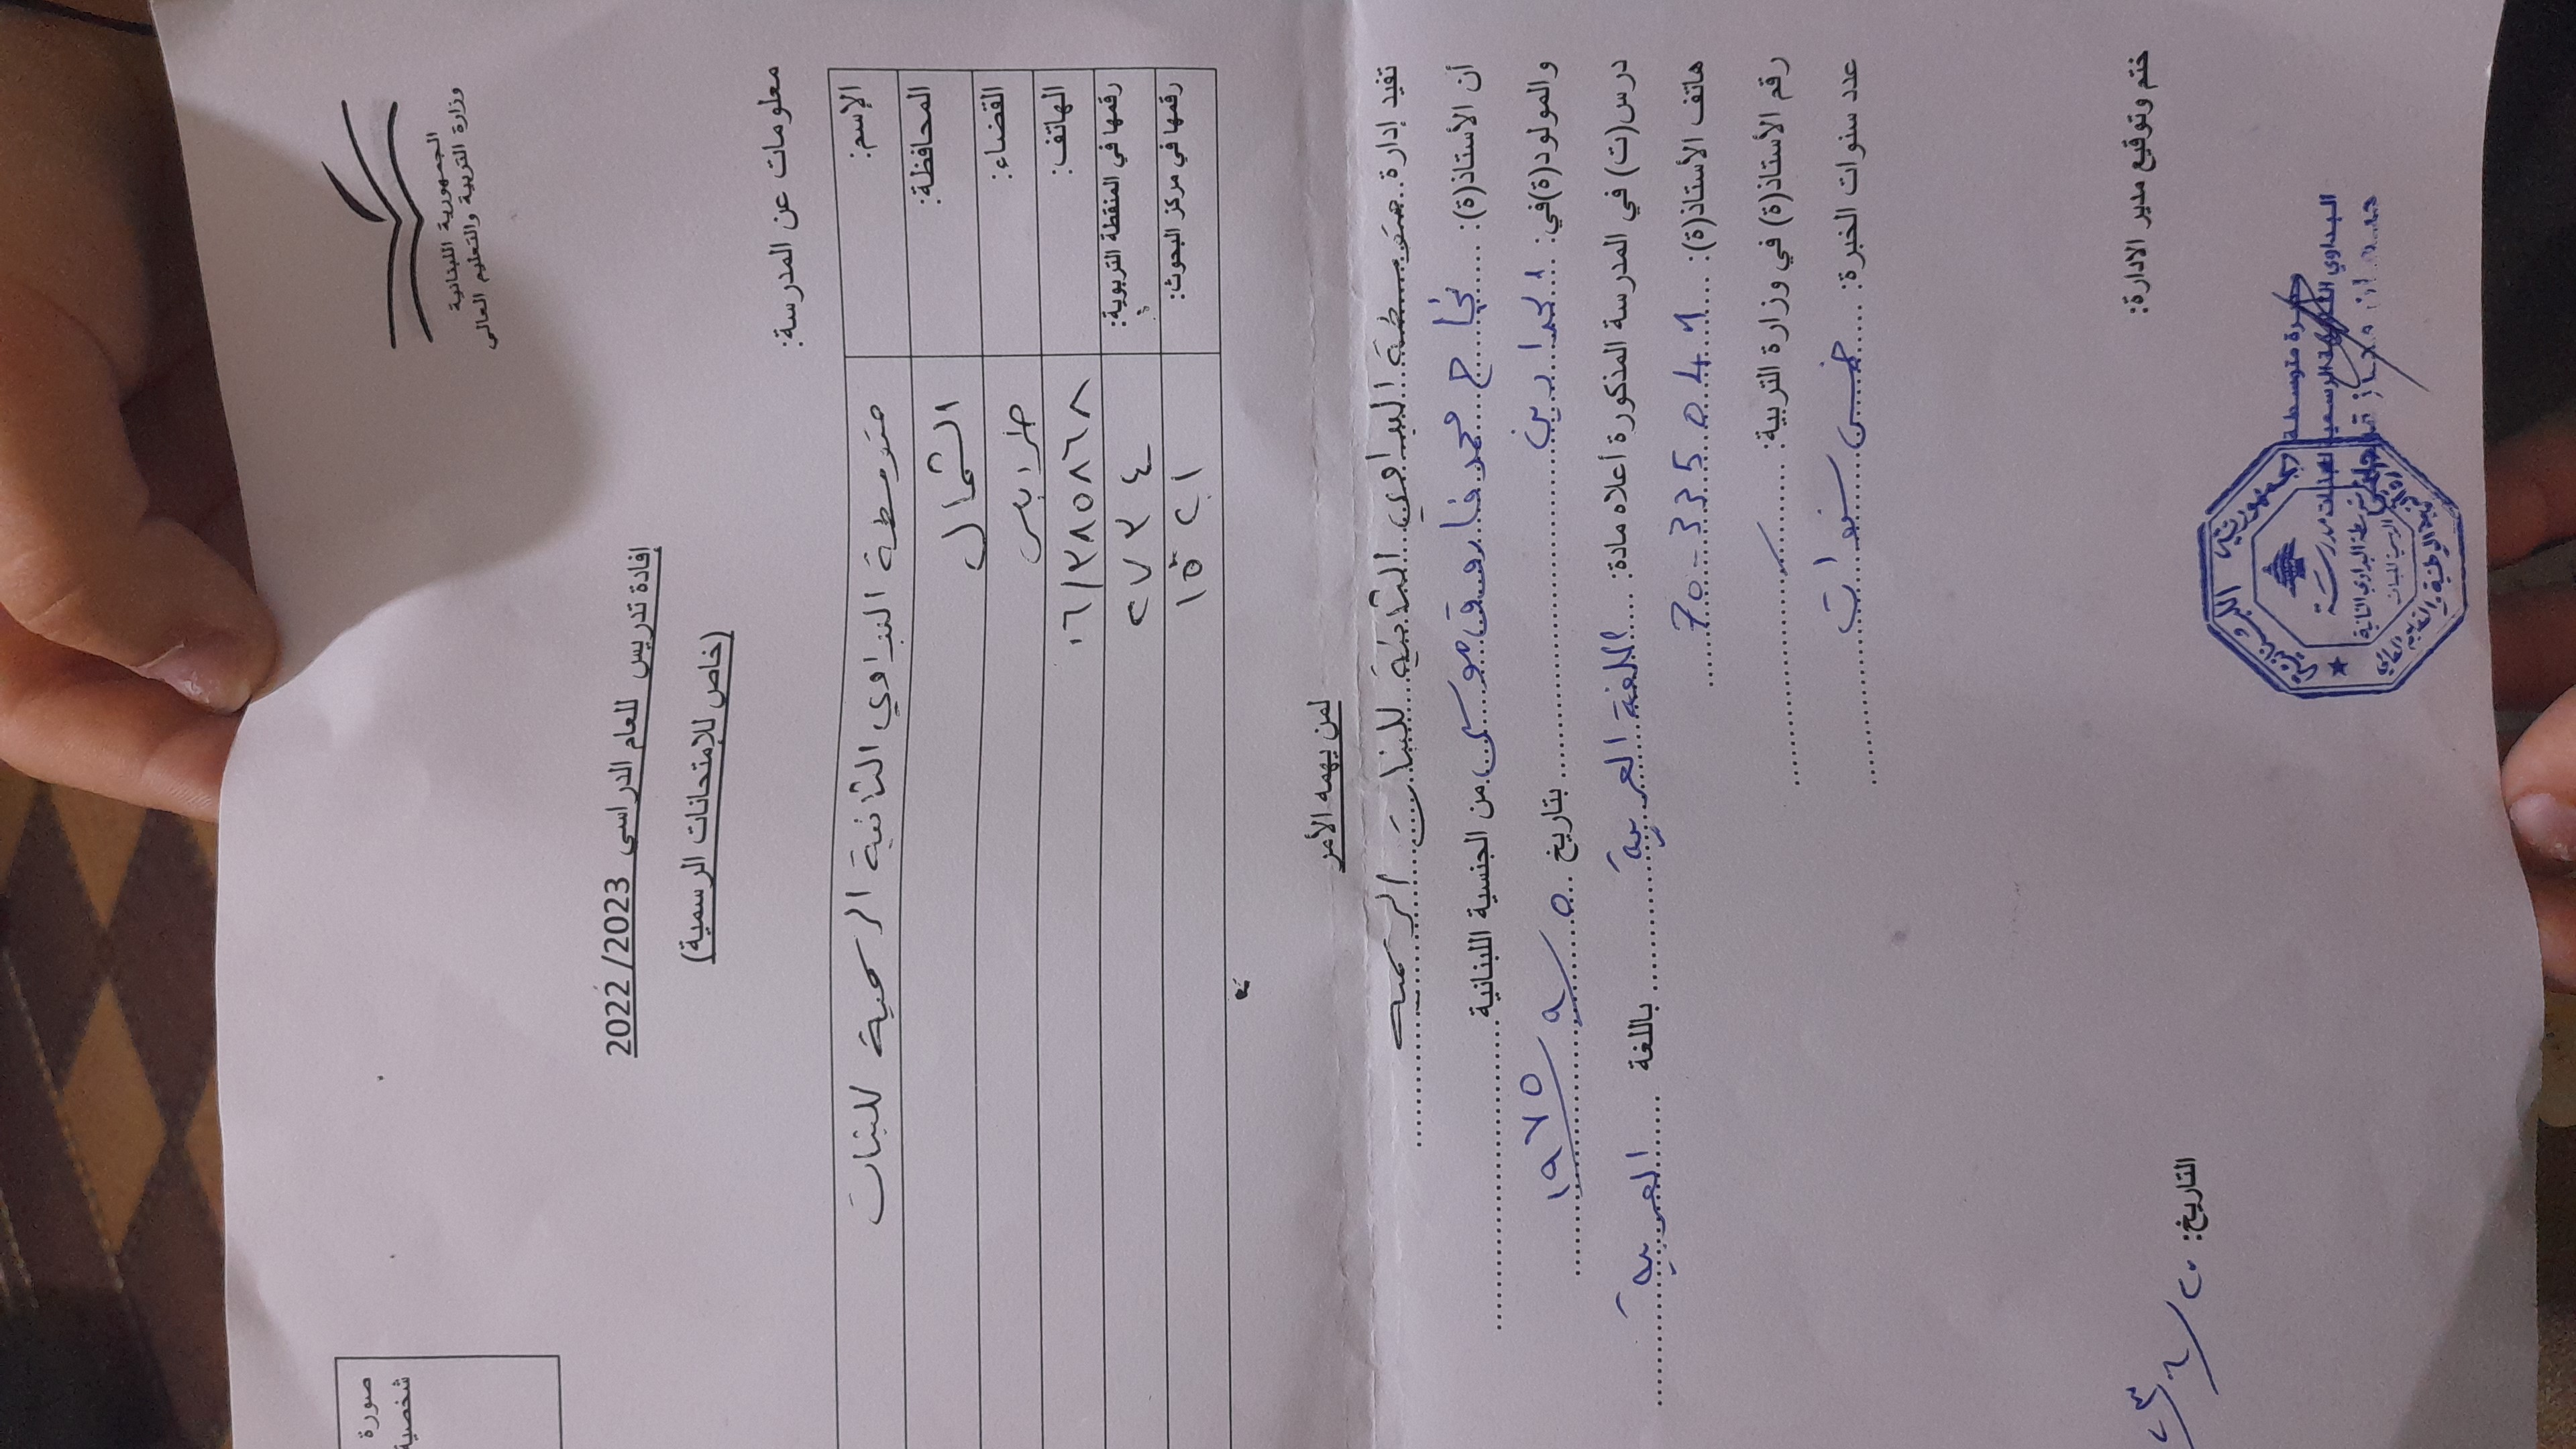 الجمهورية اللبنانية
وزارة التربية والتعليم العالي
صورة
شخصية
افادة تدريس للعام الدراسي 2022/2023
(خاص للإمتحانات الرسمية)
معلومات عن المدرسة:
الإسم: متوسطة البداوي الثانية الرسمية للبنات
المحافظة: الشمال
القضاء: طرابلس
الهاتف: ٠٦/٣٨٥٨٦٨
رقمها في المنقطة التربوية: ٢٧٣٤
رقمها في مركز البحوث: ١٥٢١
لمن يهمه الأمر
تفيد إدارة متوسطة البداوي الثانية للبنات الرسمية
أن الأستاذ(ة): نجاح محمد فاروق موسى من الجنسية اللبنانية
والمولود(ة)في: بتاريخ ٥/٩/١٩٧٥
درس(ت) في المدرسة المذكورة أعلاه مادة: اللغة العربية باللغة العربية
هاتف الأستاذ(ة): 70-335041
رقم الأستاذ(ة) في وزارة التربية:
عدد سنوات الخبرة: خمس سنوات
ختم وتوقيع مدير الادارة:
التاريخ:
مديرة متوسطة
البداوي الثانية الرسمية للبنات